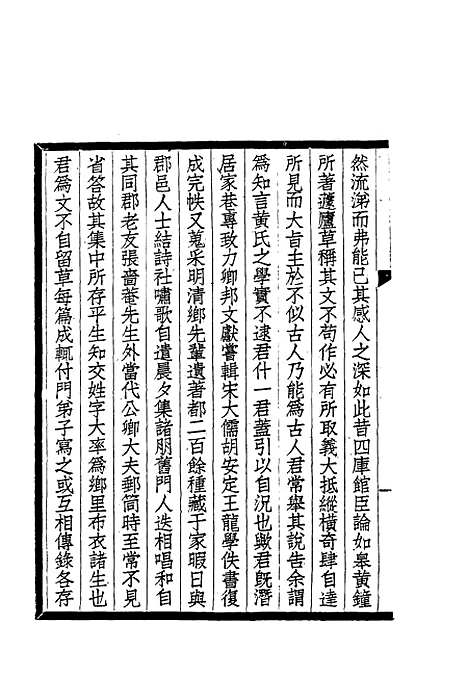 然流涕而弗能已其感人之深如此昔四庫館臣論如皋黄鐘
所著蘧廬草稱其文不苟作必有所取義大抵縱横奇肆自達
所見而大旨主於不似古人乃能爲古人君常舉其說告余謂
爲知言黄氏之學實不逮君什一君蓋引以自況也歟君既潛
居家巷專致力鄉邦文獻嘗輯宋大儒胡安定王龍學佚書復
成完帙又蒐采明清鄉先輩遺著都二百餘種藏于家暇日與
郡邑人士結詩社嘯歌自遣晨夕集諸朋舊門人迭相唱和自
其同郡老友張嗇菴先生外當代公卿大夫郵筒時至常不見
省答故其集中所存平生知交姓字大率爲鄉里布衣諸生也
君爲文不自留草每篇成輒付門弟子寫之或互相傳錄各存